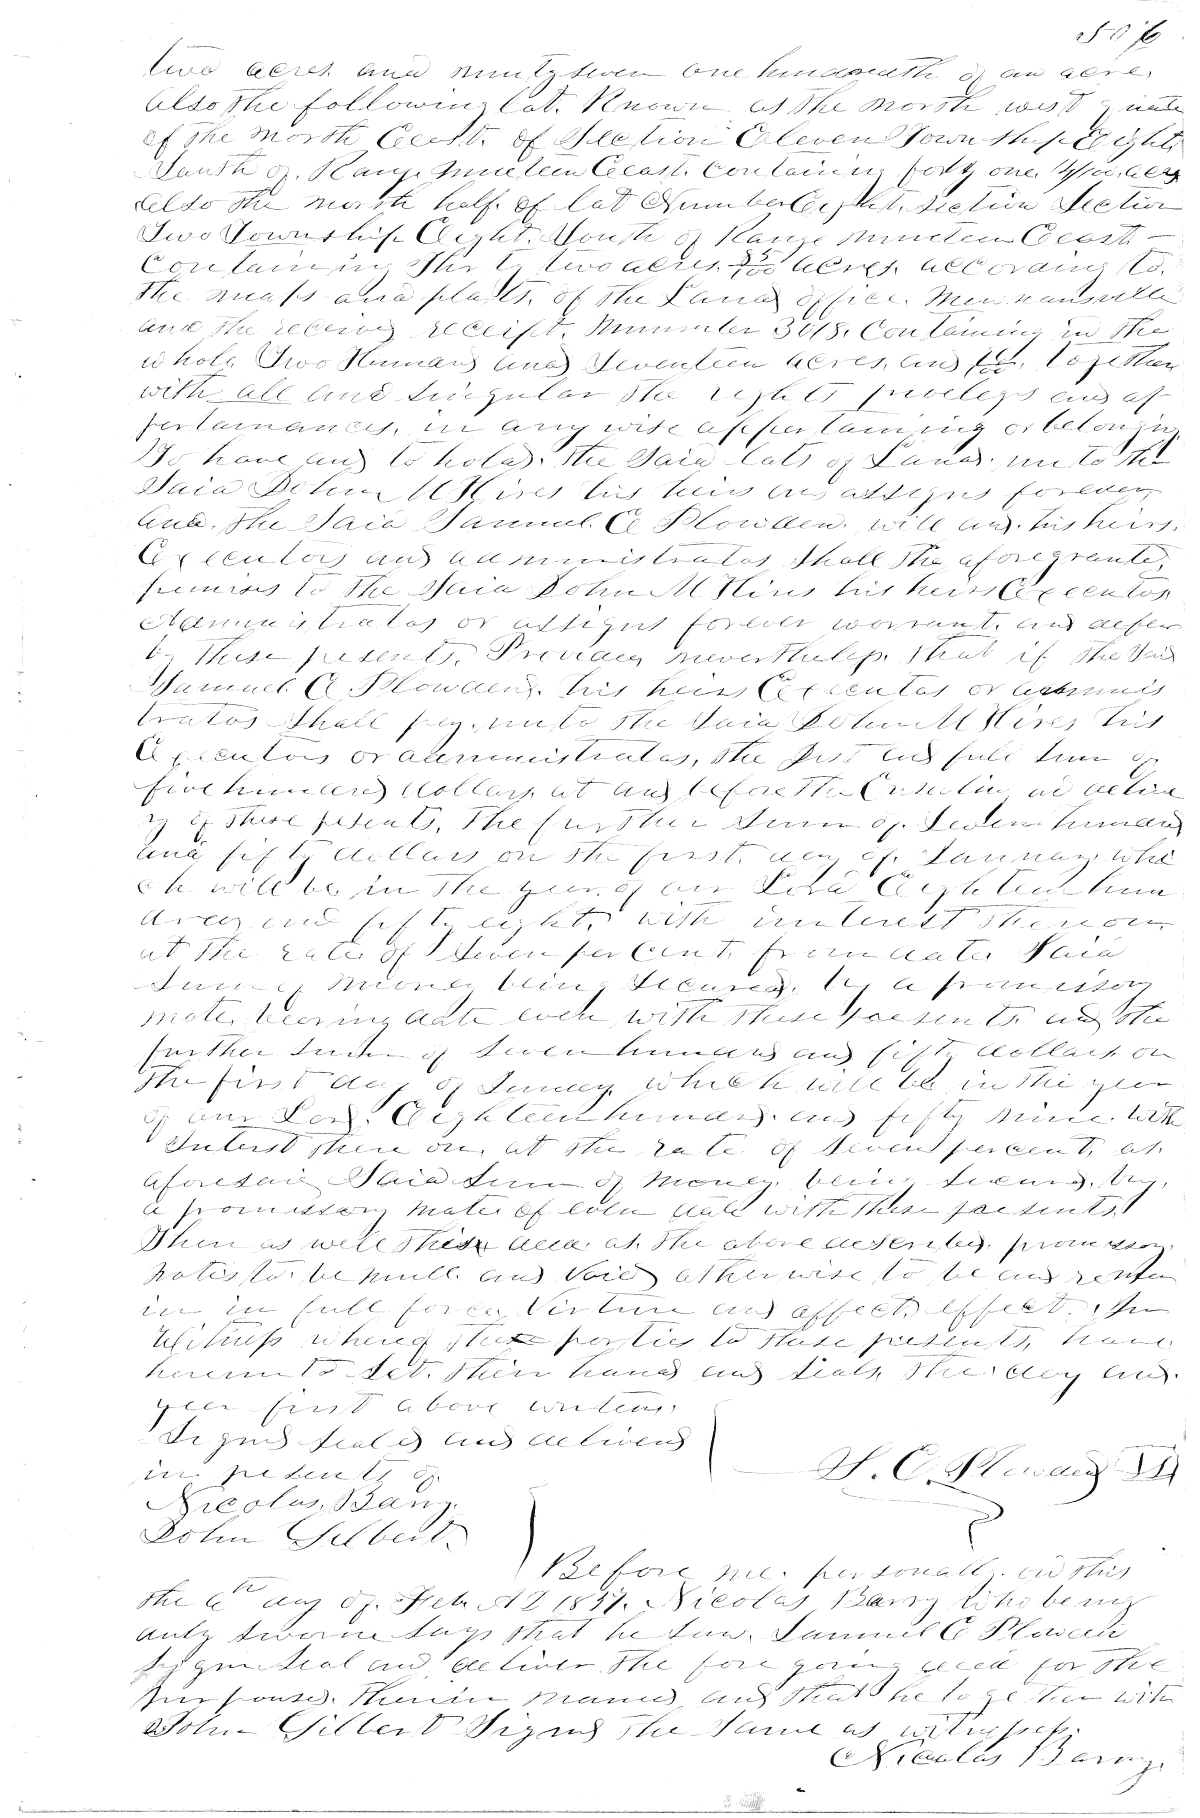 507
two acres and ninty seven one hundredth of an acre.
also the following lot. Known as the north west quarte
of the north East. of Section Eleven Township Eight
South of. Range nineteen East. containing forty one. acres
also the north half. of lot Number Eight. section Section
Two Township Eight. South of Range nineteen East. —
Containing Thirty two acres. 35/100 acres. according to.
the maps and platts. of the Land office. Newnansville
and the receiving receipt. Nummber 3018. Containing in the
whole Two Hundred and Seventeen acres. and together
with all and singular the rights priveleges and ap
pertainances. in any wise appertaining or belonging
To have and to hold. the Said lots of Land. unto the
Said John M Hires his heirs and assigns forever
and. the Said Samuel. E Plowden. will and. his heirs.
Executors and administrators shall the afore grante
premises to the Said John M Hires his heirs Executors
Administrators or assigns forever worrant. and defen
by these presents. Provided nevertheless. that if the Said
Samuel. E Plowden. his heirs Executors or adminis
trators shall pay. unto the Said John M Hires his
Executors or administrators, the just and full sum of
five hundred dollars. at and before the Ensealing and delive
ry of these presents. The further Sum of. Seven hundred
and fifty dollars on the first. day of. January. whi
ch will be in the year. of our Lord Eighteen hun
dred and fifty eight. with interest thereon
at the rate of Seven per Cent. from date Said
Sum of money being secured. by a promissory
note. bearing date even with these presents and the
further Sum of Seven hundred and fifty dollars on
the first day of January. which will be in the year
of our Lord. Eighteen hundred. and fifty nine. with
Interst there on. at the rate of Seven percent. as.
aforesaid Said Sum of money. being secured. by.
a promissory note of even date with these presents.
Then as well this deed. as. the above described. promissory
notes to. be null. and Void otherwise to be and remain
in in full force Virtue and affect. effect. In
Witness whereof the parties to these presents, have
hereunto set. their hand and seals. the day and.
year first above written.
Signed sealed and delivered
in presents of.
S. E. Plowden
Nicolas. Barry.
John Gilbert.
Before me. personally. on this
the 6th day of. Feb. AD 1857. Nicolas Barry who being
duly sworne says that he saw. Samuel E Plowden
sign seal and deliver the fore going deed for the
purposes. therein named and that he together with
John Gilbert Signed the same as witnesses.
Nicolas Barry.